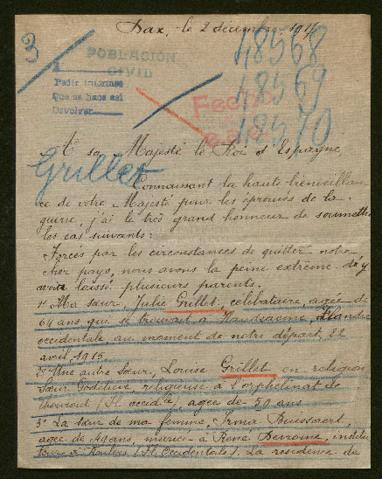 Dax, le 2 décembre 191
3
POBLACIÓN
CIVIL
Pedir informes
Que se hace así
Devolver
48568
48569
48570
Grillet
A sa Majesté le Roi d'Espagne,
Connaissant la haute bienveillan-
ce de votre Majesté pour les éprouvés de la
guerre, j'ai le très grand honneur de soumettre
les cas suivants:
Forcés par les circonstances de quitter notre
cher pays, nous avons la peine extrême d'y
avoir laissé plusieurs parents.
1° Ma sœur, Julie Grillet, célibataire, agée de
64 ans qui se trouvait à Flandre
occidentale au moment de notre départ, 22
avril 1915
2° Une autre sœur, Louise Grillet, en religion
Sœur religieuse à l'orphelinat de
Fl. occid^le, agée de 50 ans
3° La sœur de ma femme Irma
agée de ans, mariée à René
à (Fl. Occidentale). La résidence de